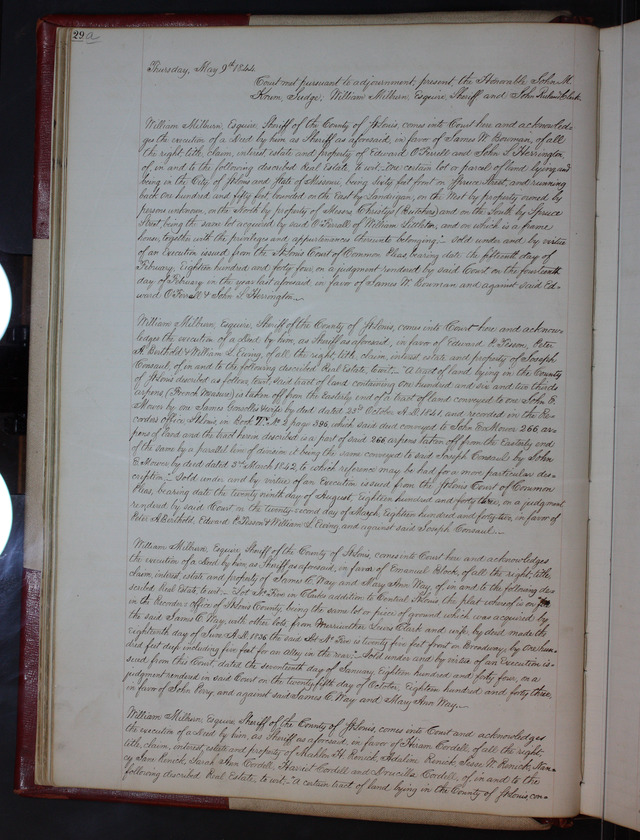 29a
Thursday, May 9th 1844
Court met pursuant to adjournment, present, the Honorable John M.
Krum, Judge, William Milburn, Esquire, Sheriff and John Ruland Clerk
William Milburn, Esquire, Sheriff of the County of St Louis, comes into Court here and acknowled-
ges the execution of a Deed by him as Sheriff as aforesaid, in favor of James W. Bowman, of all
the right, title, claim, interest estate and property of Edward O'Ferrell and John S. Herrington,
of, in and to the following described Real Estate, to wit,— One certain lot or parcel of land lying and
being in the City of St Louis and State of Missouri, being Sixty feet front on Spruce Street, and running
back one hundred and fifty feet, bounded on the East by Landrigan, on the West by property owned by
persons unknown, on the North by property of Messrs Christys (Butchers) and on the South by Spruce
Street, being the same lot acquired by said O'Ferrell of William Littleton, and on which is a frame
house, together with the privileges and appurtenances thereunto belonging;" Sold under and by virtue
of an Execution issued from the St Louis Court of Common Pleas, bearing date the fifteenth day of
February, Eighteen hundred and forty four, on a judgment rendered by said Court on the fourteenth
day of February in the year last aforesaid, in favor of James W. Bowman and against said Ed-
ward O'Ferrell & John S. Herrington
William Milburn, Esquire, Sheriff of the County of St Louis, comes into Court here and acknow-
ledges the execution of a Deed by him, as Sheriff as aforesaid, in favor of Edward P. Tesson, Peter
A. Berthold & William L. Ewing, of all the right, title, claim, interest estate and property of Joseph
Consaul, of in and to the following described Real Estate, to wit:— "A tract of land, lying in the County
of St Louis described as follows, to wit said tract of land containing one hundred and six and two thirds
arpens, (French measure) is taken off from the easterly end of a tract of land conveyed to one John E.
Mower by one James Gowell & wife by deed dated 23d October A.D. 1841, and recorded in the Re-
corders office, St Louis, in Book T. No 2 page 396, which said deed conveyed to John E. Mower 266 ar-
pens of land and the tract herein described is a part of said 266 arpens taken off from the Easterly end
of the same by a parallel line of division it being the same conveyed to said Joseph Consaul by John
E. Mower by deed dated 3d March 1842, to which reference may be had for a more particular des-
cription." Sold under and by virtue of an Execution issued from the St Louis Court of Common
Pleas, bearing date the twenty ninth day of August, Eighteen hundred and forty three, on a judgment
rendered by said Court on the twenty second day of March, Eighteen hundred and forty two, in favor of
Peter A. Berthold, Edward P. Tesson & William L. Ewing, and against said Joseph Consaul
William Milburn, Esquire, Sheriff of the County of St Louis, comes into Court here and acknowledges
the execution of a Deed by him, as Sheriff as aforesaid, in favor of Emanuel Block, of all the right, title,
claim, interest, estate and property of James C. Way and Mary Ann Way, of, in and to the following des-
cribed Real Estate, to wit:— Lot No Five in Clark's addition to Central St Louis the plat whereof is on file
in the Recorders office of St Louis County, being the same lot or piece of ground which was acquired by
the said James C. Way, with other lots from Merriwether Lewis Clark and wife, by deed, made the
Eighteenth day of June A.D. 1836 the said Lot No Five is twenty five feet front on Broadway, by One hun-
dred feet deep including five feet for an alley in the rear:" Sold under and by virtue of an Execution is-
sued from this Court dated the seventeenth day of January Eighteen hundred and forty four, on a
judgment rendered in said Court on the twenty fifth day of October, Eighteen hundred and forty three,
in favor of John Perry, and against said James C. Way and Mary Ann Way
William Milburn, Esquire, Sheriff of the County of St Louis, comes into Court and acknowledges
the execution of a Deed by him, as Sheriff as aforesaid, in favor of Hiram Cordell, of all the right,
title, claim, interest estate and property of Mahlon H. Renick, Adaline Renick, Jesse W. Renick, Nan-
cy Jane Renick, Sarah Ann Cordell, Harriet Cordell and Drucilla Cordell, of in and to the
following described Real Estate, to wit:— "A certain tract of land lying in the County of St Louis, con-